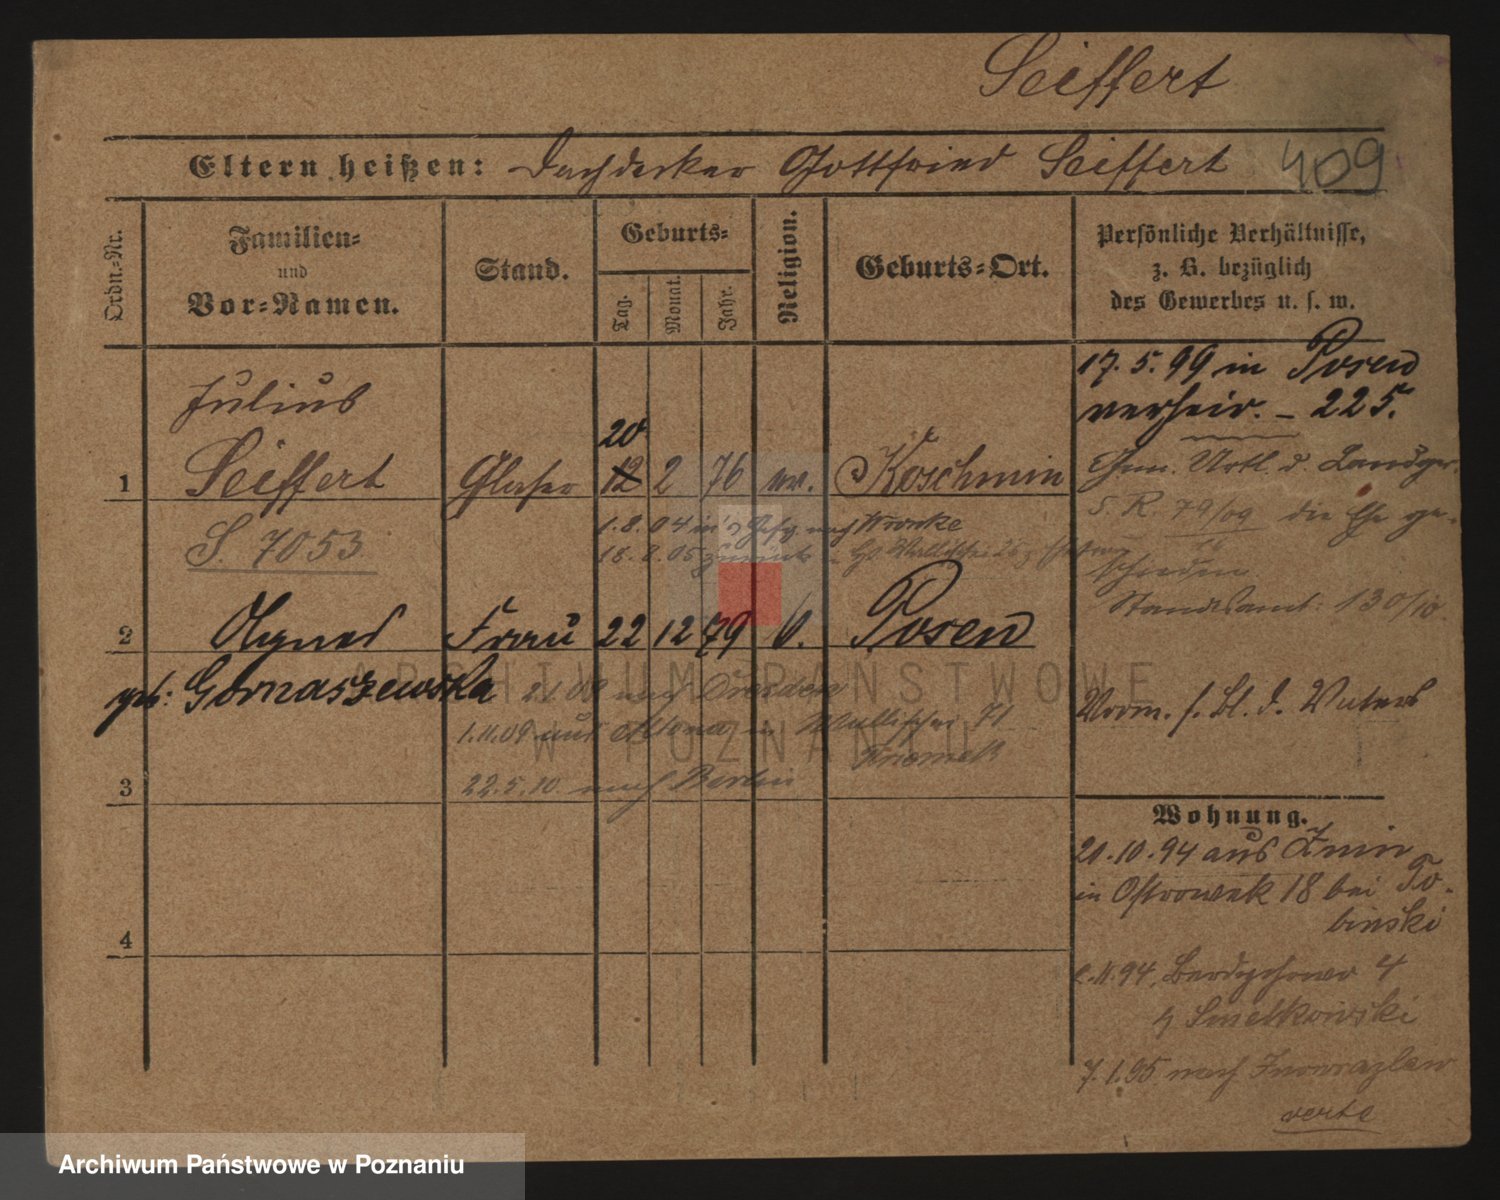 Seiffert
409
Eltern heißen: Dachdecker Gottfried Seiffert
Ordn.-Nr.
Familien-
und
Vor-Namen.
Stand.
Geburts-
Tag.
Monat.
Jahr.
Religion.
Geburts-Ort.
Persönliche Verhältnisse,
z. B. bezüglich
des Gewerbes u. s. w.
Julius
20
1 Seiffert Glaser 12 2 76 ev. Koschmin
S. 7053
1.8.04 in's Gefg nach Wronke
18.8.05 zurück
2 Agnes Frau 22 12 79 k. Posen
geb: Gornaszewska
nach Dresden
1.11.09 aus Altona in Wallischei 71
22.5.10 nach Berlin
3
4
17.5.99 in Posen
verheir. – 225.
Gem. Urtl. d. Landger.
5. R. 79/09 die Ehe ge-
schieden
Standesamt: 130/10.
Vorm. s. Bl. d. Vaters
Wohnung.
20.10.94 aus Znin
in Ostrowek 18 bei To-
binski
1.11.94, Berdychowo 4
7.1.95 nach Inowrazlaw
verte
ARCHIWUM PAŃSTWOWE
W POZNANIU
Archiwum Państwowe w Poznaniu